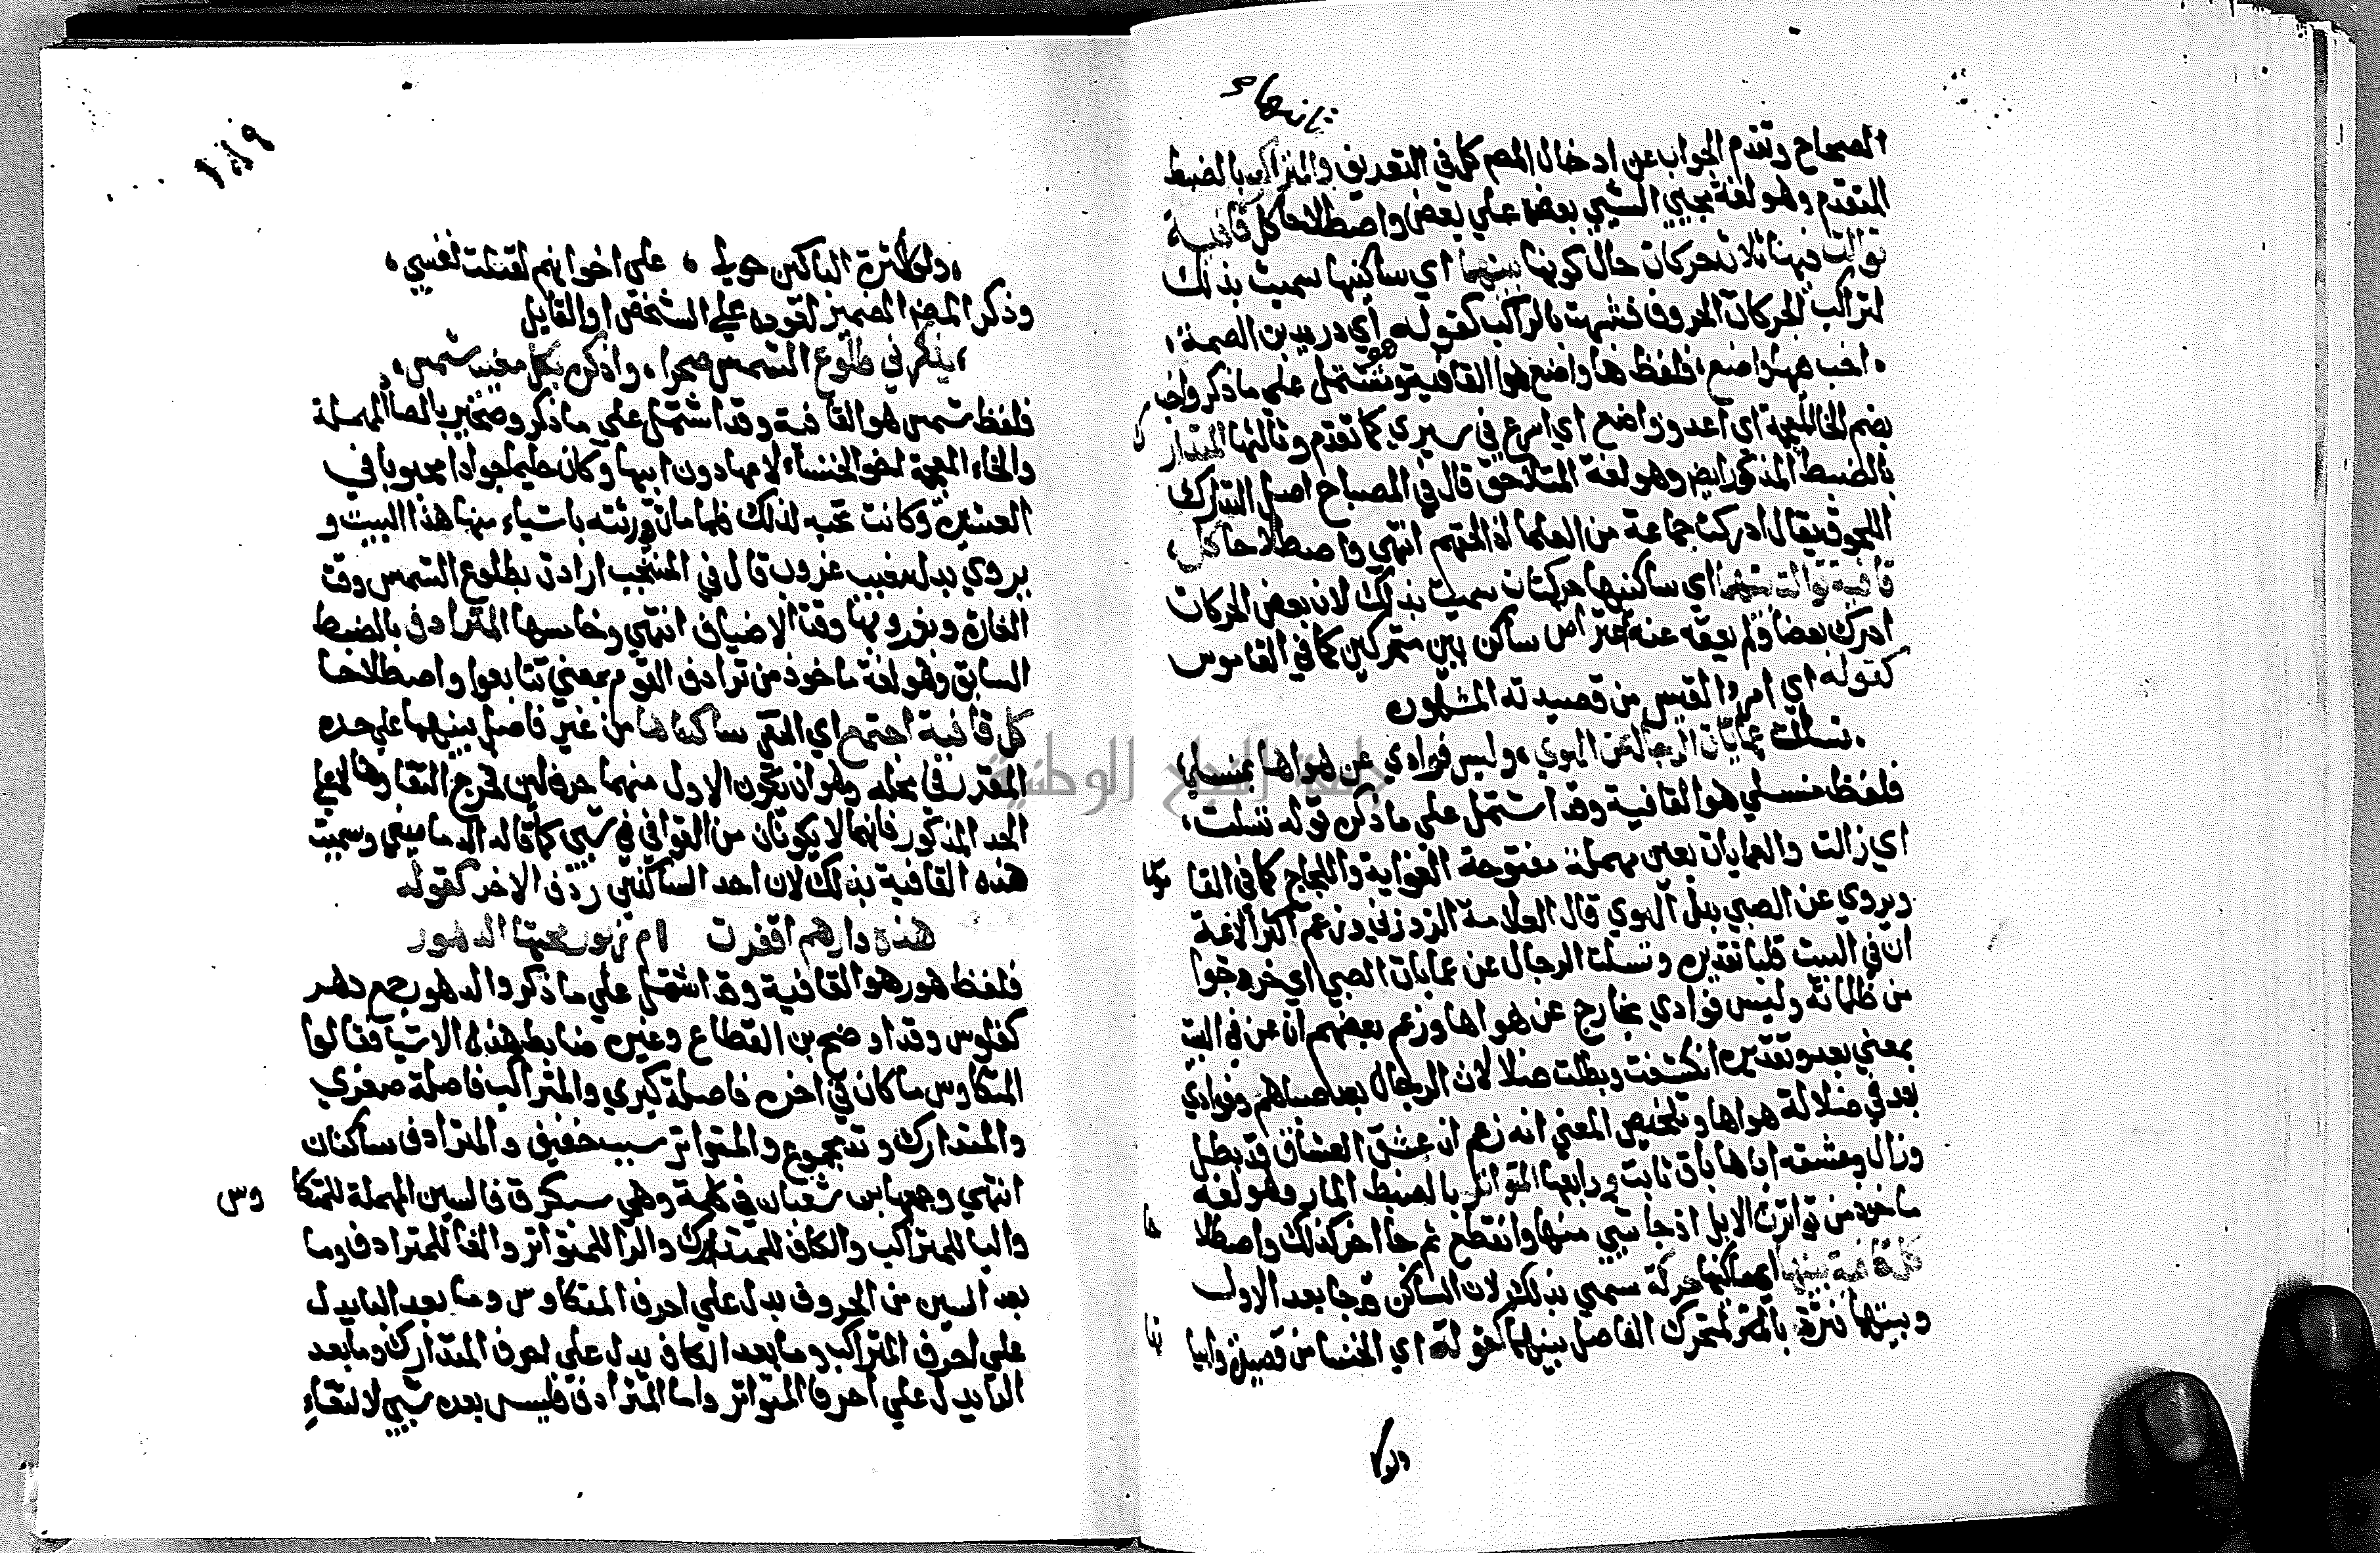 ثانيها
الصحاح وتقدم الجواب عن ادخال المص كل في التعريف والمتراكب بالضبط
المتقدم وهو لغة مجيي الشيي بعضه علي بعض واصطلاحا كل قافية
توالت فيها ثلاث حركات حال كونها بينهما اي ساكنيها سميت بذلك
لتراكب الحركات الحروف فشبهت بالراكب كقوله اي دريد بن الصمة،
، اخب فيها واضع، فلفظ ها واضع هو القافية وتشتمل علي ما ذكر واخب
بضم الخا المعجمة اي اعدو واضع اي اسرع في سيري كما تقدم وثالثها المتدارك
بالضبط المذكور ايض وهو لغة المتلاحق قال في المصباح اصل التدارك
اللحوق يقال ادركت جماعة من العلما اذا لحقتهم انتهي واصطلاحا كل،
قافية توالت بينهما اي ساكنيها حركتان سميت بذلك لان بعض الحركات
ادرك بعضا ولم يعقه عنه اعتراض ساكن بين متحركين كما في القاموس
كقوله اي امرؤ القيس من قصيدته المشهوره
، تسلت عمايات الرجال عن الهوي، وليس فوادي عن هواها بمنسلي،
فلفظ منسلي هو القافية وقد اشتمل علي ما ذكر قوله تسلت،
اي زالت والعمايات بعين مهملة مفتوحة الغواية واللجاج كما في القاموس
ويروي عن الصبي بدل الهوي قال العلامة الزوزني وزعم اكثر الائمة
ان في البيت قلبا تقديره وتسلت الرجال عن عمايات الصبي اي خرجوا
من ظلماته وليس فوادي بخارج عن هواها وزعم بعضهم ان عن في البيت
بمعني بعد وتقديره انكشفت وبطلت ضلالات الرجال بعد صباهم وفوادي
بعد في ضلالة هواها وتلخيص المعني انه زعم ان عشق العشاق قد بطل
وزال وعشقه اياها باق ثابت ورابعها المتواتر بالضبط المار وهو لغة
ماخوذ من تواترت الابل اذا جا شيي منها وانقطع ثم جا اخر كذلك واصطلاحا
كل قافية بينهما اي ساكنيها حركة سمي بذلك لان الساكن جا بعد الاول
وبينهما فترة بالمتحرك الفاصل بينهما كقوله اي الخنسا من قصيدة وابياتها
ولولا
، ولولا كثرة الباكين حولي ، علي اخوانهم لقتلت نفسي،
وذكر المص الضمير لعوده علي الشخص او القايل
، يذكرني طلوع الشمس صخرا، واذكره بكل مغيب شمس،
فلفظ شمس هو القافية وقد اشتمل علي ما ذكر وصخر بالصاد المهملة
والخاء المعجمة اخو الخنساء لامها دون ابيها وكان حليما جوادا محبوبا في
العشيرة وكانت تحبه لذلك فلما مات ورثته باشياء منها هذا البيت و
يروي بدل مغيب غروب قال في المنتخب ارادت بطلوع الشمس وقت
الغارة وبغروبها وقت الاضياف انتهي وخامسها المترادف بالضبط
السابق وهو لغة ماخوذ من ترادف القوم بمعني تتابعوا واصطلاحا
كل قافية اجتمع اي التقي ساكناها من غير فاصل بينهما علي حده
المقرر في محله وهو ان يكون الاول منهما حرف لين فخرج التقاوهما لا علي
الحد المذكور فانهما لا يكونان من القوافي في شيي كما قاله الدماميني وسميت
هذه القافية بذلك لان احد الساكنين ردف الاخر كقوله
هذه دارهم اقفرت ام زبور محتها الدهور
فلفظ هور هو القافية وقد اشتمل علي ما ذكر والدهور جمع دهر
كفلوس وقد اوضح بن القطاع وغيره ضابط هذه الابيات فقالوا
المتكاوس ما كان في اخره فاصلة كبري والمتراكب فاصلة صغري
والمتدارك وتد مجموع والمتواتر سبب خفيف والمترادف ساكنان
انتهي وجمعها بن شعبان في كلمة وهي سبكرف فالسين المهملة للمتكاوس
والبا للمتراكب والكاف للمتدارك والرا للمتواتر والفا للمترادف وما
بعد السين من الحروف يدل علي احرف المتكاوس وما بعد البا يدل
علي احرف المتراكب وما بعد الكاف يدل علي احرف المتدارك وما بعد
الرا يدل علي احرف المتواتر واما المترادف فليس بعده شيي لالتقاء
جامعة النجاح الوطنية